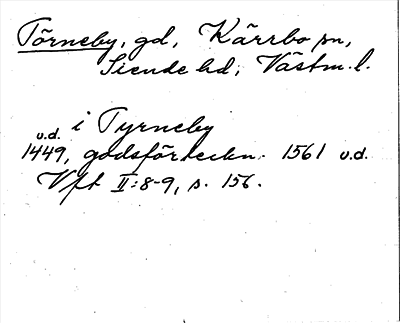 Törneby, gd, Kärrbo sn,
Siende hd, Västm. l.
u.d. i Tyrneby
1449, godsförteckn. 1561 u.d.
Vft II:8-9, s. 156.